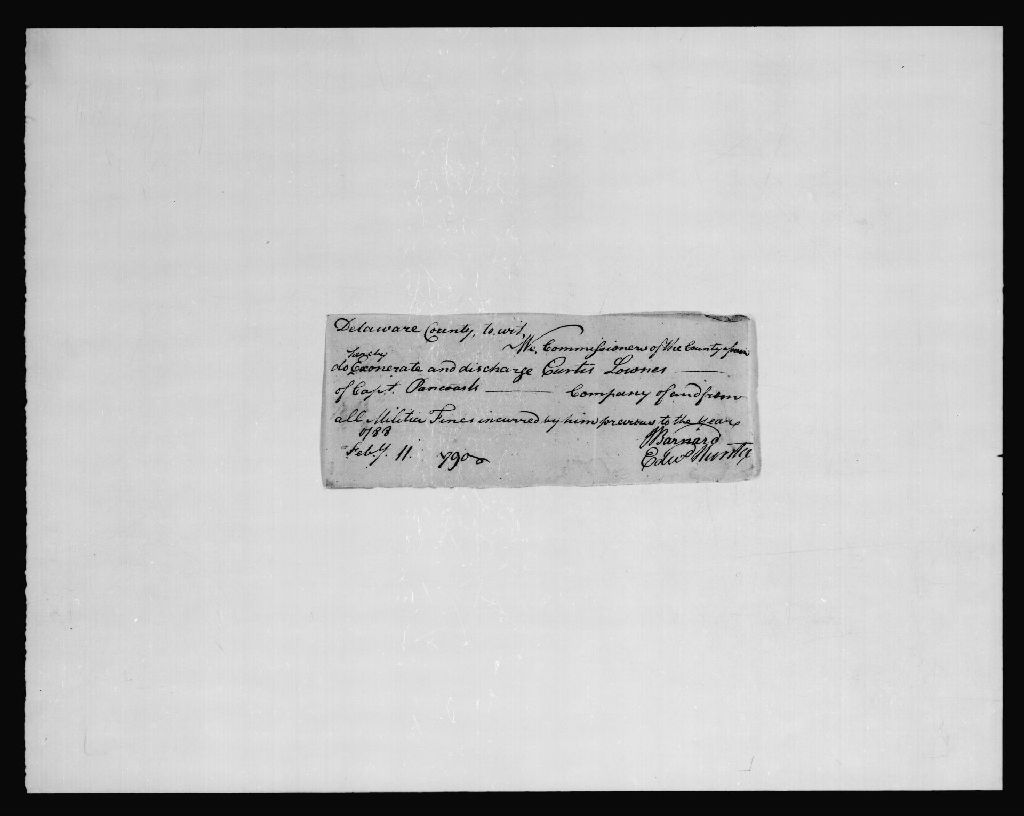 Delaware County, to wit,
We, Commissioners of the County
hereby
do Exonerate and discharge Curtis Lownes
of Capt. Pancoasts Company of and from
all Militia Fines incurred by him previous to the Year
1788
Feb.y 11. 790
Barnard
Edwd